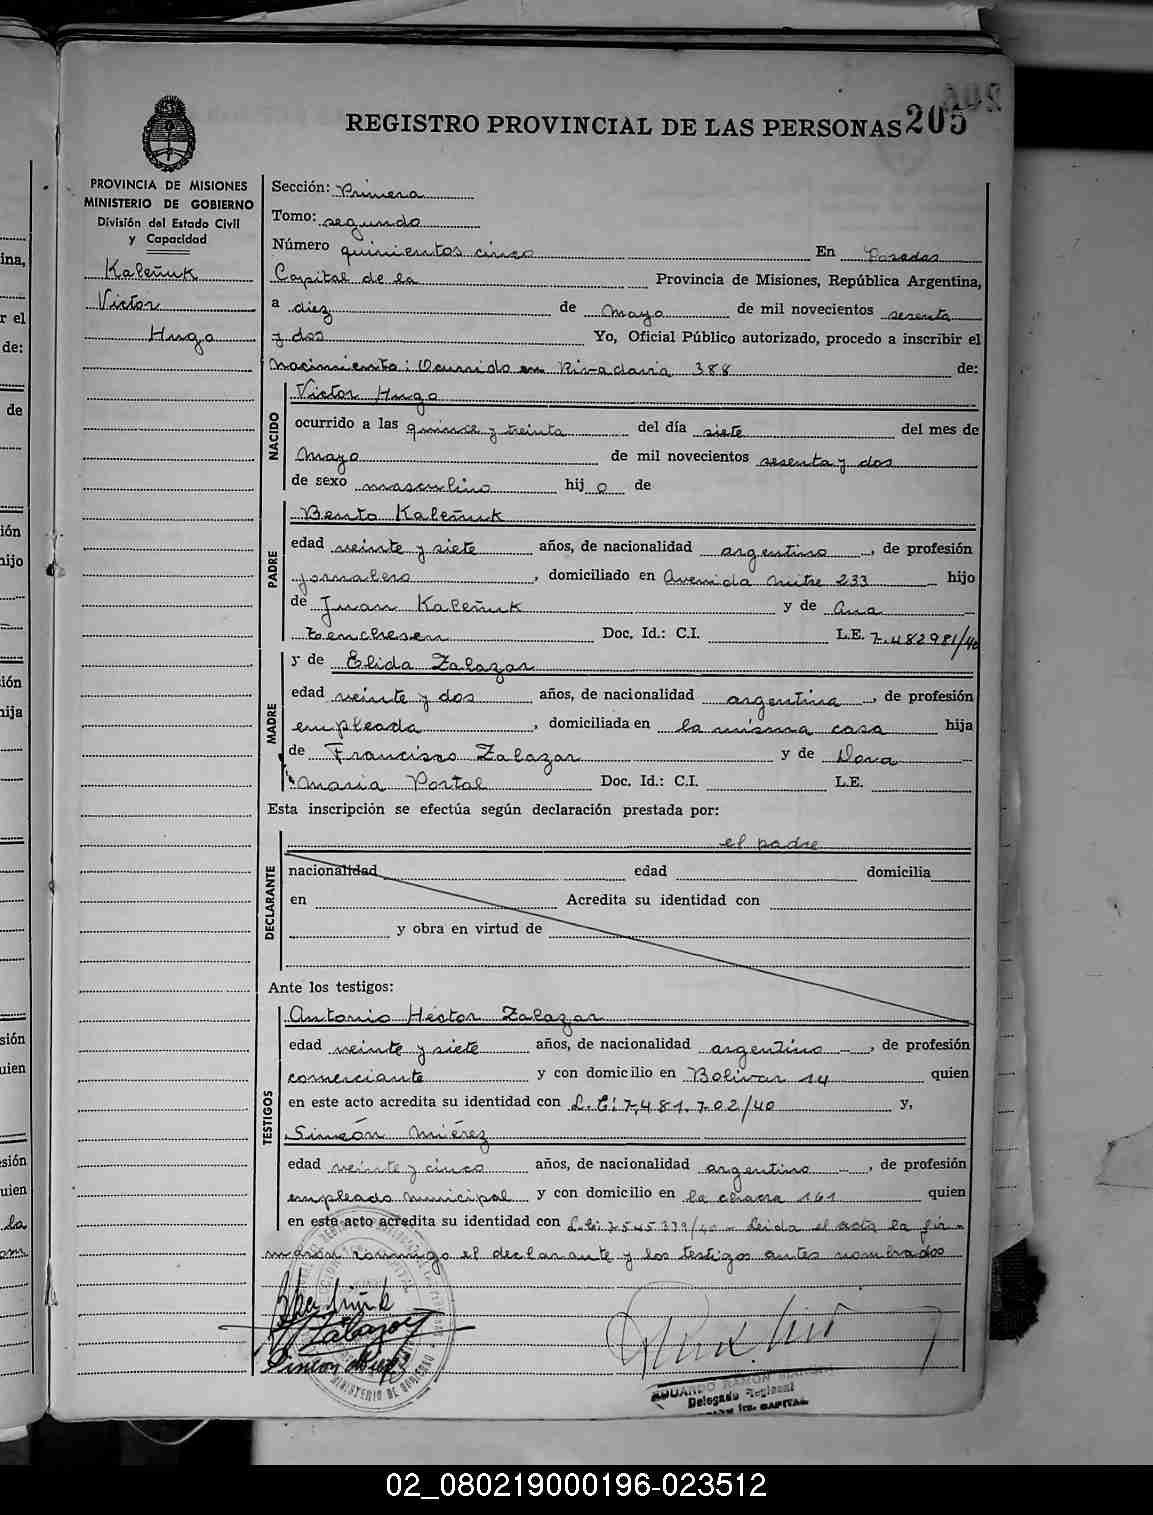 205
REGISTRO PROVINCIAL DE LAS PERSONAS
PROVINCIA DE MISIONES
MINISTERIO DE GOBIERNO
División del Estado Civil
y Capacidad
Kaleñuk
Victor
Hugo
Sección: Primera
Tomo: segundo
Número quinientos cinco En Posadas
Capital de la Provincia de Misiones, República Argentina,
a diez de Mayo de mil novecientos sesenta
y dos Yo, Oficial Público autorizado, procedo a inscribir el
nacimiento: Ocurrido en Rivadavia 388 de:
NACIDO
Victor Hugo
ocurrido a las quince y treinta del día siete del mes de
Mayo de mil novecientos sesenta y dos
de sexo masculino hij o de
PADRE
Bento Kaleñuk
edad veinte y siete años, de nacionalidad argentino, de profesión
jornalero, domiciliado en Avenida Mitre 233 hijo
de Juan Kaleñuk y de Ana
Doc. Id.: C.I. L.E. 7.482981/40
MADRE
y de Elida Zalazar
edad veinte y dos años, de nacionalidad argentina, de profesión
empleada, domiciliada en la misma casa hija
de Francisco Zalazar y de Dora
Maria Portal Doc. Id.: C.I. L.E.
Esta inscripción se efectúa según declaración prestada por:
DECLARANTE
el padre
nacionalidad edad domicilia
en Acredita su identidad con
y obra en virtud de
Ante los testigos:
TESTIGOS
Antonio Héctor Zalazar
edad veinte y siete años, de nacionalidad argentino, de profesión
comerciante y con domicilio en Bolivar 14 quien
en este acto acredita su identidad con L.E: 7.481.702/40 y,
Simeón Miérez
edad veinte y cinco años, de nacionalidad argentino, de profesión
empleado municipal y con domicilio en la chacra 161 quien
en este acto acredita su identidad con Leida el acta la fir-
maron conmigo el declarante y los testigos antes nombrados
Zalazar
MINISTERIO DE GOBIERNO
EDUARDO RAMON
Delegado Regional
CAPITAL
02_080219000196-023512